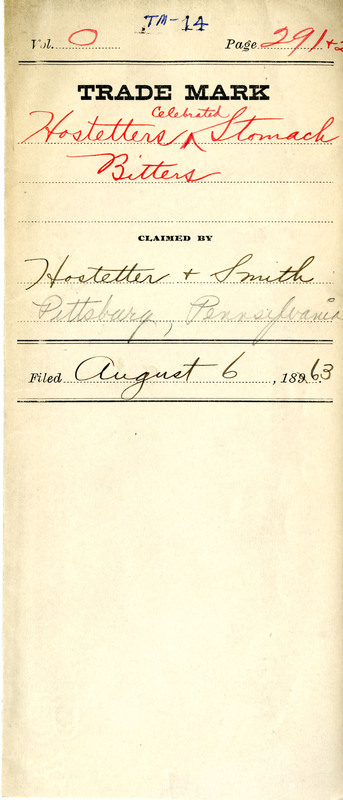 TM-14
Vol. O Page 291+2
TRADE MARK
Hostetters Celebrated Stomach
Bitters
CLAIMED BY
Hostetter + Smith
Pittsburg, Pennsylvania
Filed August 6, 1863